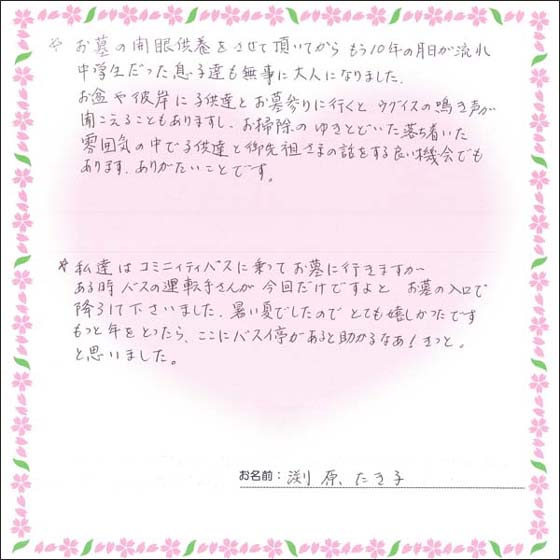 * お墓の開眼供養をさせて頂いてから もう10年の月日が流れ
中学生だった息子達も無事に大人になりました。
お盆や彼岸に子供達とお墓参りに行くと ウグイスの鳴き声が
聞こえることもありますし、お掃除のゆきとどいた落ち着いた
雰囲気の中で子供達と御先祖さまの話をする良い機会でも
あります。ありがたいことです。
* 私達はコミニィティバスに乗ってお墓に行きますが
ある時バスの運転手さんが 今回だけですよと お墓の入口で
降ろして下さいました。暑い夏でしたので とても嬉しかったです
もっと年をとったら、ここにバス停があると助かるなあ!きっと。
と思いました。
お名前: 渕原、たき子